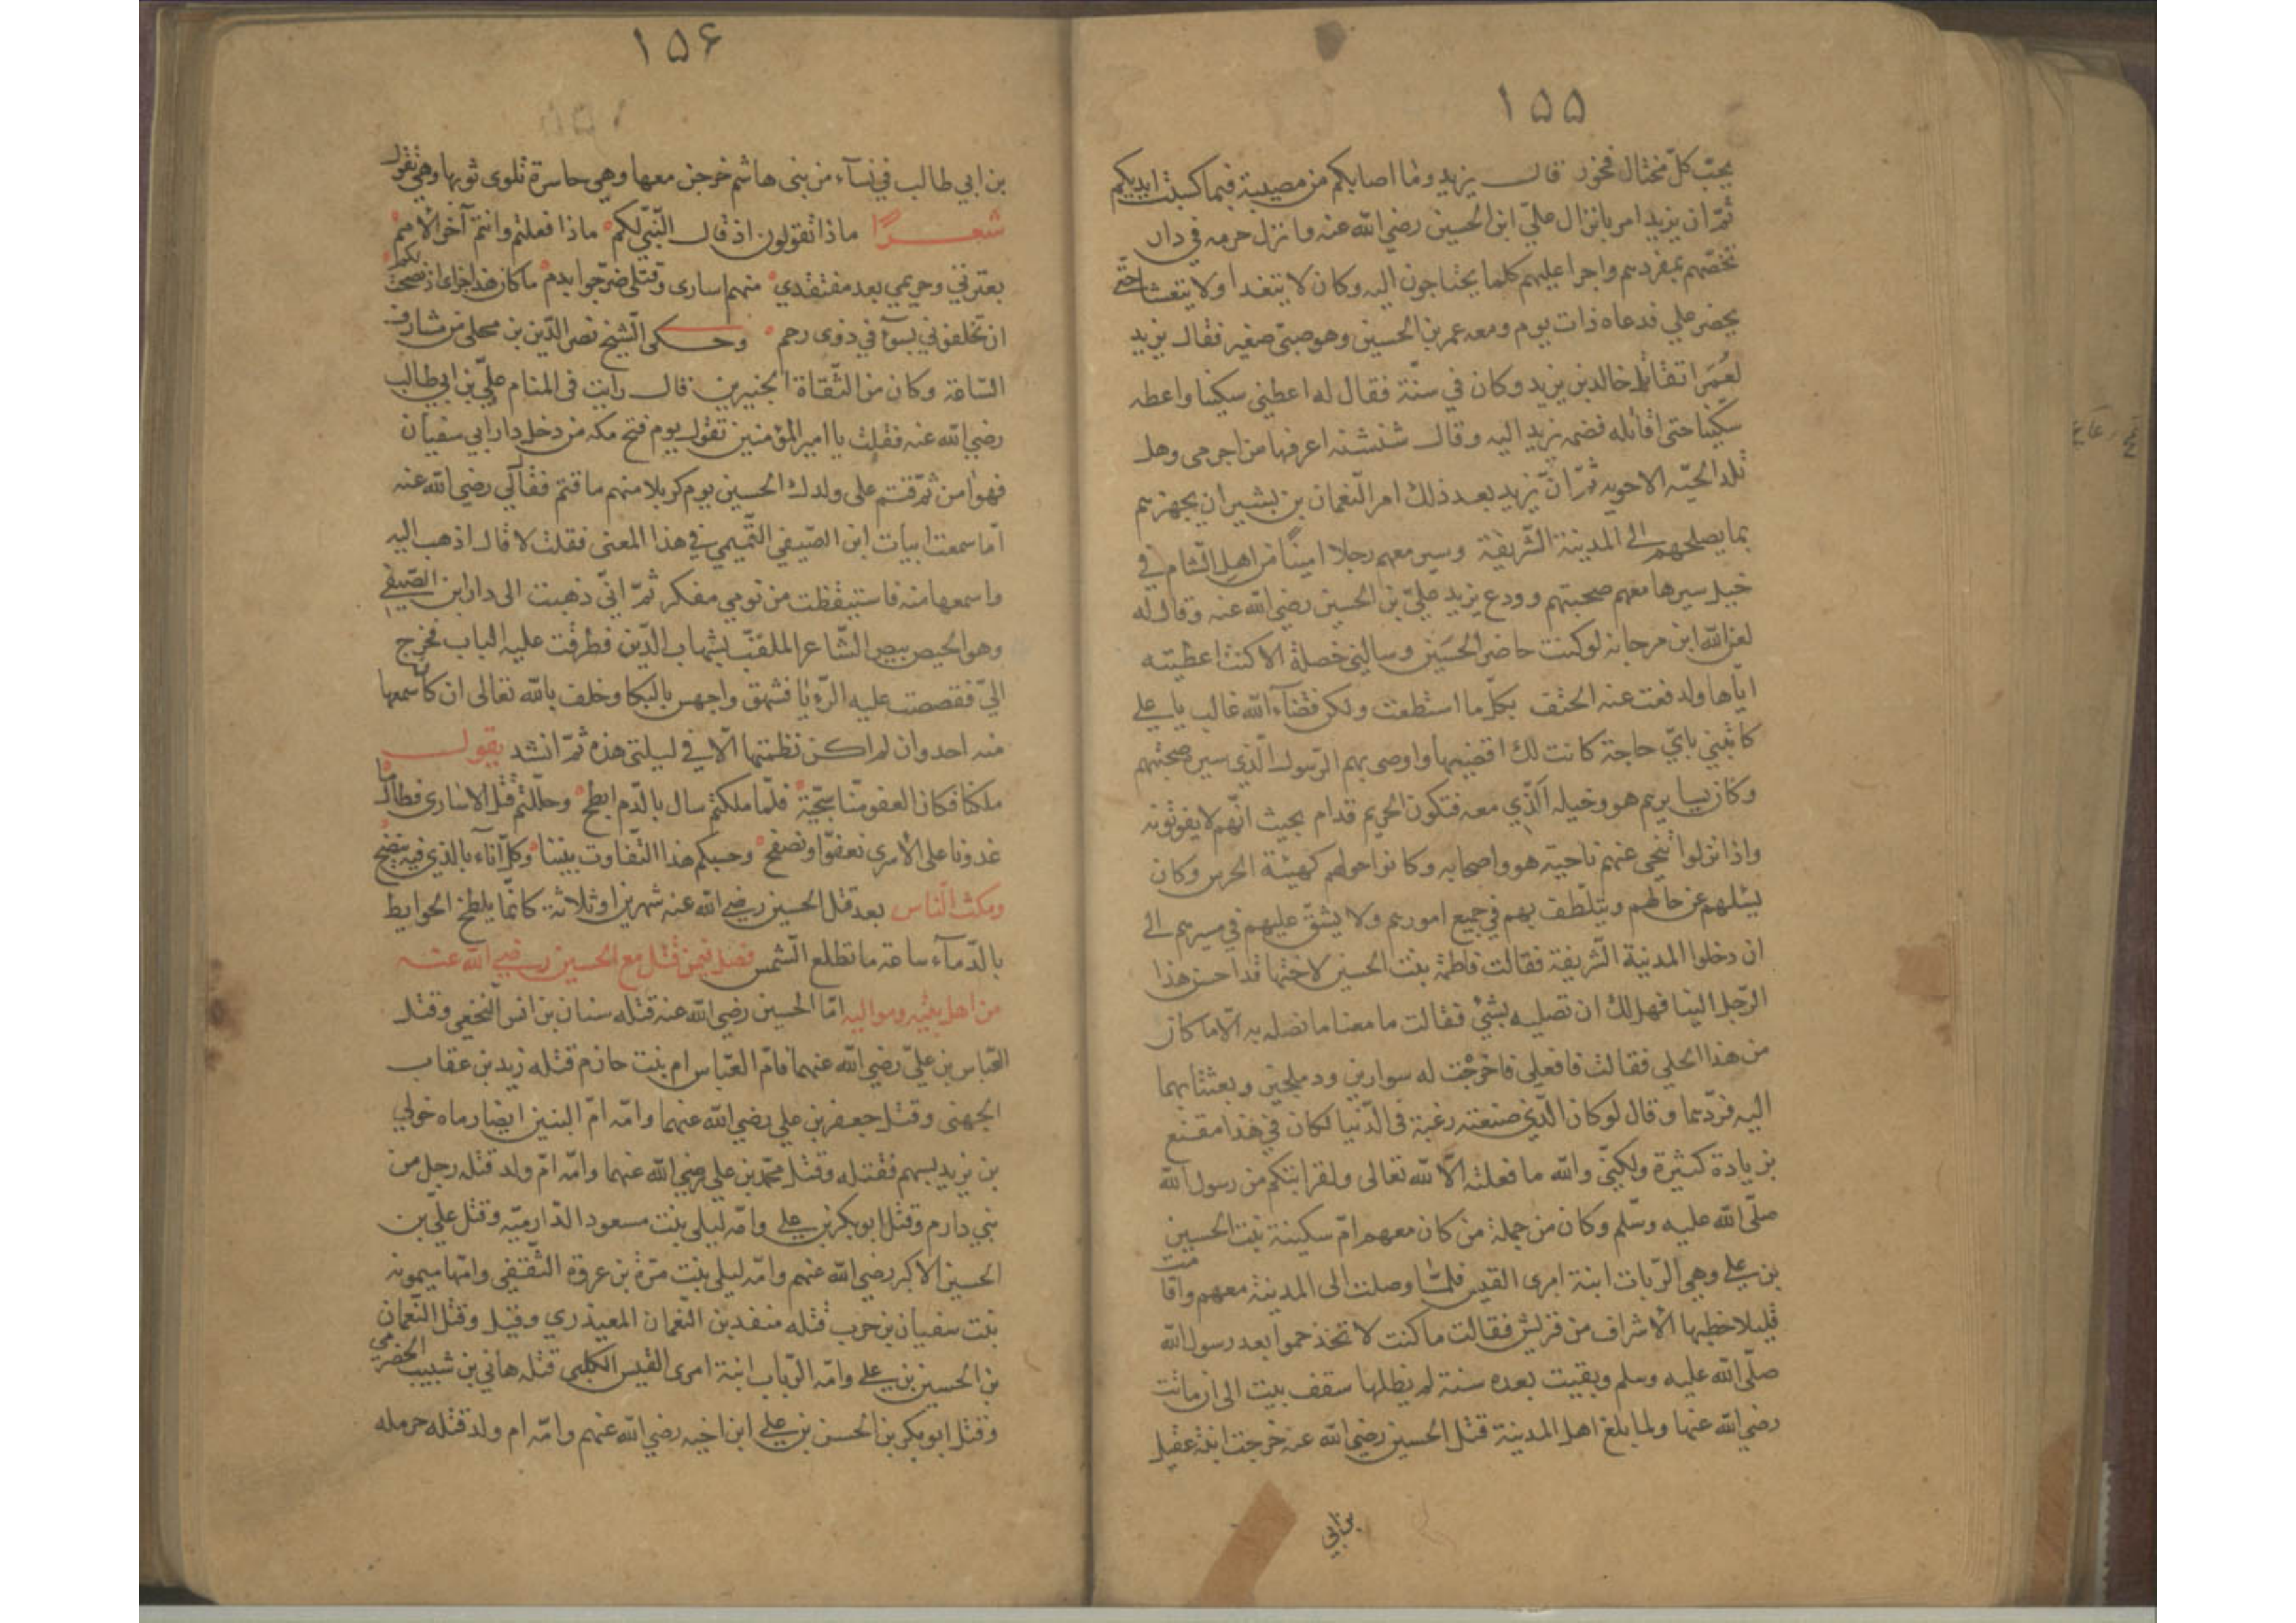 ١٥٥
يحبّ كلّ مختال فخور قال يزيد وما اصابكم من مصيبة فبما كسبت ايديكم
ثمّ ان يزيد امر بانزال عليّ ابن الحسين رضي الله عنه وانزل حرمه في دار
تخصّهم بمفردهم واجرا عليهم كلما يحتاجون اليه وكان لا يتغدا ولا يتعشا حتّى
يحضر علي فدعاه ذات يوم ومعه عمر بن الحسين وهو صبيّ صغير فقال يزيد
لعُمَر اتقاتل خالد بن يزيد وكان في سنّه فقال له اعطني سكينا واعطه
سكينا حتى اقاتله فضمه يزيد اليه وقال شنشنه اعرفها من اخرمى وهل
تلد الحيّه الا حويه ثمّ انّ يزيد بعد ذلك امر النّعمان بن بشير ان يجهزهم
بما يصلحهم الى المدينة الشّريفة وسير معهم رجلا امينًا من اهل الشّام في
خيل سيرها معهم صحبتهم وودع يزيد عليّ بن الحسين رضي الله عنه وقال له
لعن الله ابن مرجانه لو كنت حاضر الحسَين وسالني خصلة الا كنت اعطيته
ايّاها ولدفعت عنه الحتف بكلّ ما استطعت ولكن قضآء الله غالب يا علي
كاتبني بايّ حاجة كانت لك اقضيها واوصى بهم الرّسول الّذي سير صحبتهم
وكان يسايرهم هو وخيله الّذي معه فتكون الحريم قدام بحيث انّهم لا يفوتونه
واذا نزلوا تنحى عنهم ناحيّه هو واصحابه وكانوا حولهم كهيئة الحرس وكان
يسئلهم عن حالهم ويتلّطف بهم في جميع امورهم ولا يشقّ عليهم في مسيرهم الى
ان دخلوا المدنية الشّريفة فقالت فاطمة بنت الحسين لاختها قد احسن هذا
الرّجل الينا فهل لك ان تصليه بشيء فقالت ما معنا ما نصله به الّا ما كان
من هذا الحلي فقالت فافعلي فاخرجت له سوارين ودملجين وبعثتا بهما
اليه فردّهما وقال لو كان الّذي صنعته رغبة في الدّنيا لكان في هذا مقنع
بزيادة كثيرة ولكنّي والله ما فعلته الّا لله تعالى ولقرابتكم من رسول الله
صلّى الله عليه وسّلم وكان من جملة من كان معهم امّ سكينة بنت الحسين
بن علي وهي الرّبات ابنة امرى القيس فلمّا وصلت الى المدينة معهم واقامت
قليلا خطبها الاشراف من قريش فقالت ما كنت لا تخذ حموا بعد رسول الله
صلّى الله عليه وسلم وبقيت بعده سنة لم يظلها سقف بيت الى ان ماتت
رضي الله عنها ولما بلغ اهل المدينة قتل الحسين رضي الله عنه خرجت ابنة عقيل
بن ابي
١٥٦
بن ابي طالب في نسآء من بني هاشم خرجن معها وهي حاسرة تلوى ثوبها وهي تقول
شعرًا ماذا تقولون اذ قال النّبيّ لكم ماذا فعلتم وانتم آخر الامم
بعترتي وحريمي بعد مفتقدي منهم اسارى وقتلى ضرّجوا بدم ما كان هذا جزاى اذ نصحت لكم
ان تخلفوني بسوٓء في ذوى رحم وحكى الشّيخ نصر الدّين بن محلى من مشارف
السّاقة وكان من الثّقاة الخيرين قال رايت في المنام عليّ بن ابي طالب
رضي الله عنه فقلت يا امير المؤمنين تقول يوم فتح مكه من دخل دار ابي سفيان
فهو امن ثمّ قتم على ولدك الحسين يوم كربلا منهم ما قتم فقال لي رضي الله عنه
امّا سمعت ابيات ابن الصّيفي التّميمي في هذا المعنى فقلت لا قال اذهب اليه
واسمعها منه فاستيقظت من نومي مفكر ثمّ انّي ذهبت الى دار ابن الصّيفي
وهو الحيص بيص الشّاعر الملقّب بشهاب الدّين فطرقت عليه الباب فخرج
اليّ فقصصت عليه الرّءيا فشهق واجهس بالبكا وحلف بالله تعالى ان كان سمعها
منه احد وان لم اكن نظمتها الّا في ليلتي هذه ثمّ انشد يقول
ملكنا فكان العفو منّا سجيّة فلمّا ملكتم سال بالدّم ابطح وحلّلتم قتل الاسارى فطال ما
غدونا على الأسرى نعفوّا ونصفح وحسبكم هذا التّفاوت بيننا وكلّ انآء بالذي فيه ينضح
ومكث النّاس بعد قتل الحسين رضي الله عنه شهرين او ثلاثة كانّما يلطخ الحوايط
بالدّمآء ساعة ما تطلع الشّمس فصل فيمن قتل مع الحسين رضي الله عنه
من اهل بيته ومواليه امّا الحسين رضي الله عنه قتله سنان بن انس النّخعي وقتل
العّباس بن عليّ رضي الله عنهما فامّ العّباس ام بنت حازم قتله زيد بن عقاب
الجهنى وقتل جعفر بن علي رضي الله عنهما وامّه امّ البنين ايضا رماه خولي
بن يزيد بسهم فقتله وقتل محمّد بن علي رضي الله عنهما وامّه امّ ولد قتله رجل من
بني دارم وقتل ابو بكر بن علي وامّه ليلى بنت مسعود الدّارميّه وقتل عليّ بن
الحسين الاكبر رضي الله عنهم وامّه ليلى بنت مرّة بن عروة الثّقفي وامّها ميمونه
بنت سفيان بن حرب قتله منفد بن النّعمان المعيذري وقيل وقتل النّعمان
بن الحسين بن علي وامّه الرّباب ابنة امرى القيس الكلبى قتله هاني بن شبيب الحضرمي
وقتل ابو بكر بن الحسن بن علي ابن اخيه رضي الله عنهم وامّه ام ولد قتله حرمله